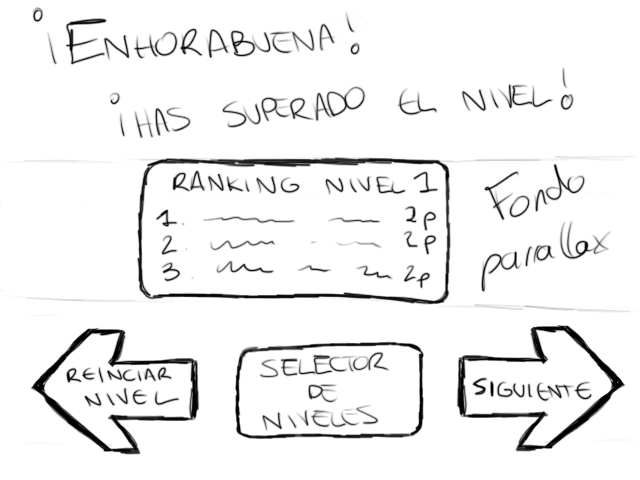 ¡ENHORABUENA!
¡HAS SUPERADO EL NIVEL!
RANKING NIVEL 1
1. 2p
2. 2p
3. 2p
Fondo
parallax
REINCIAR
NIVEL
SELECTOR
DE
NIVELES
SIGUIENTE